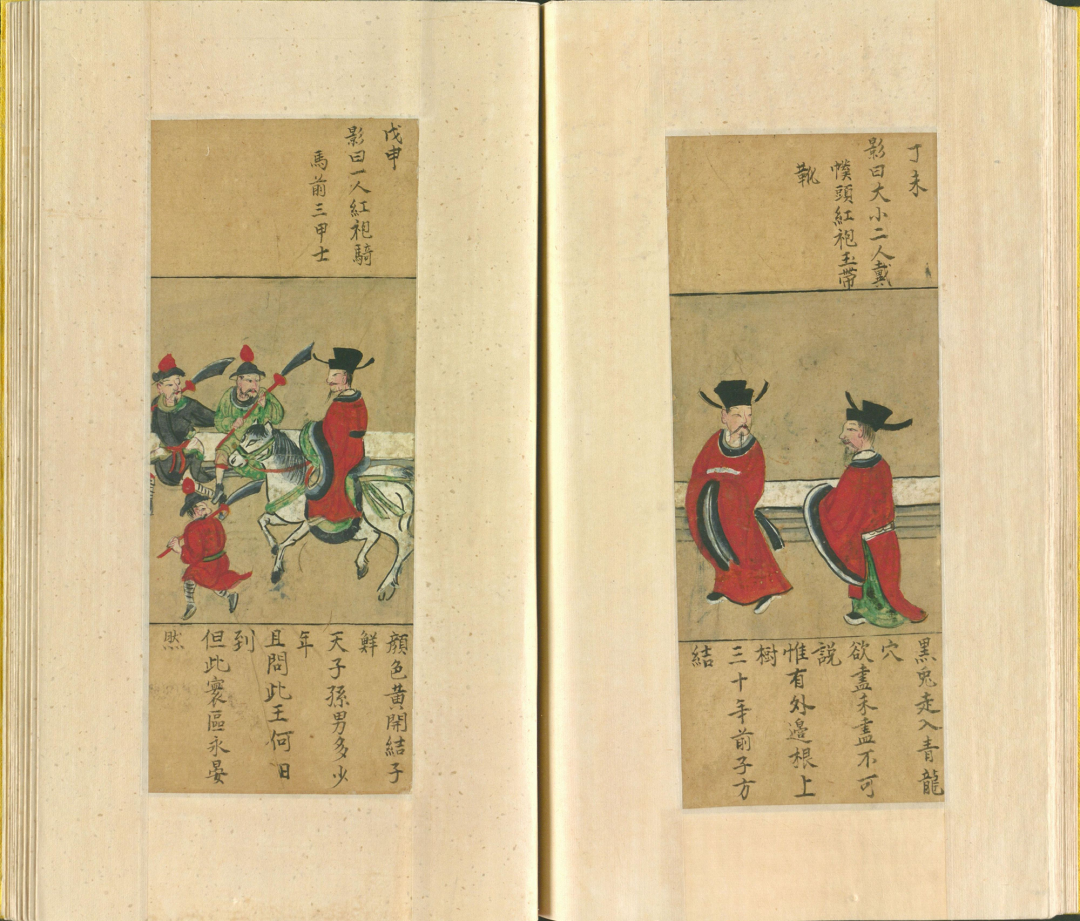 丁未
影曰大小二人戴
幞頭紅袍玉帶
靴
黑兎走入青龍
穴
欲盡未盡不可
説
惟有外邉根上
樹
三十年前子方
結
戊申
影曰一人紅袍騎
馬前三甲士
顔色黄開結子
鮮
天子孫男多少
年
且問此王何日
到
但此寰區永晏
然